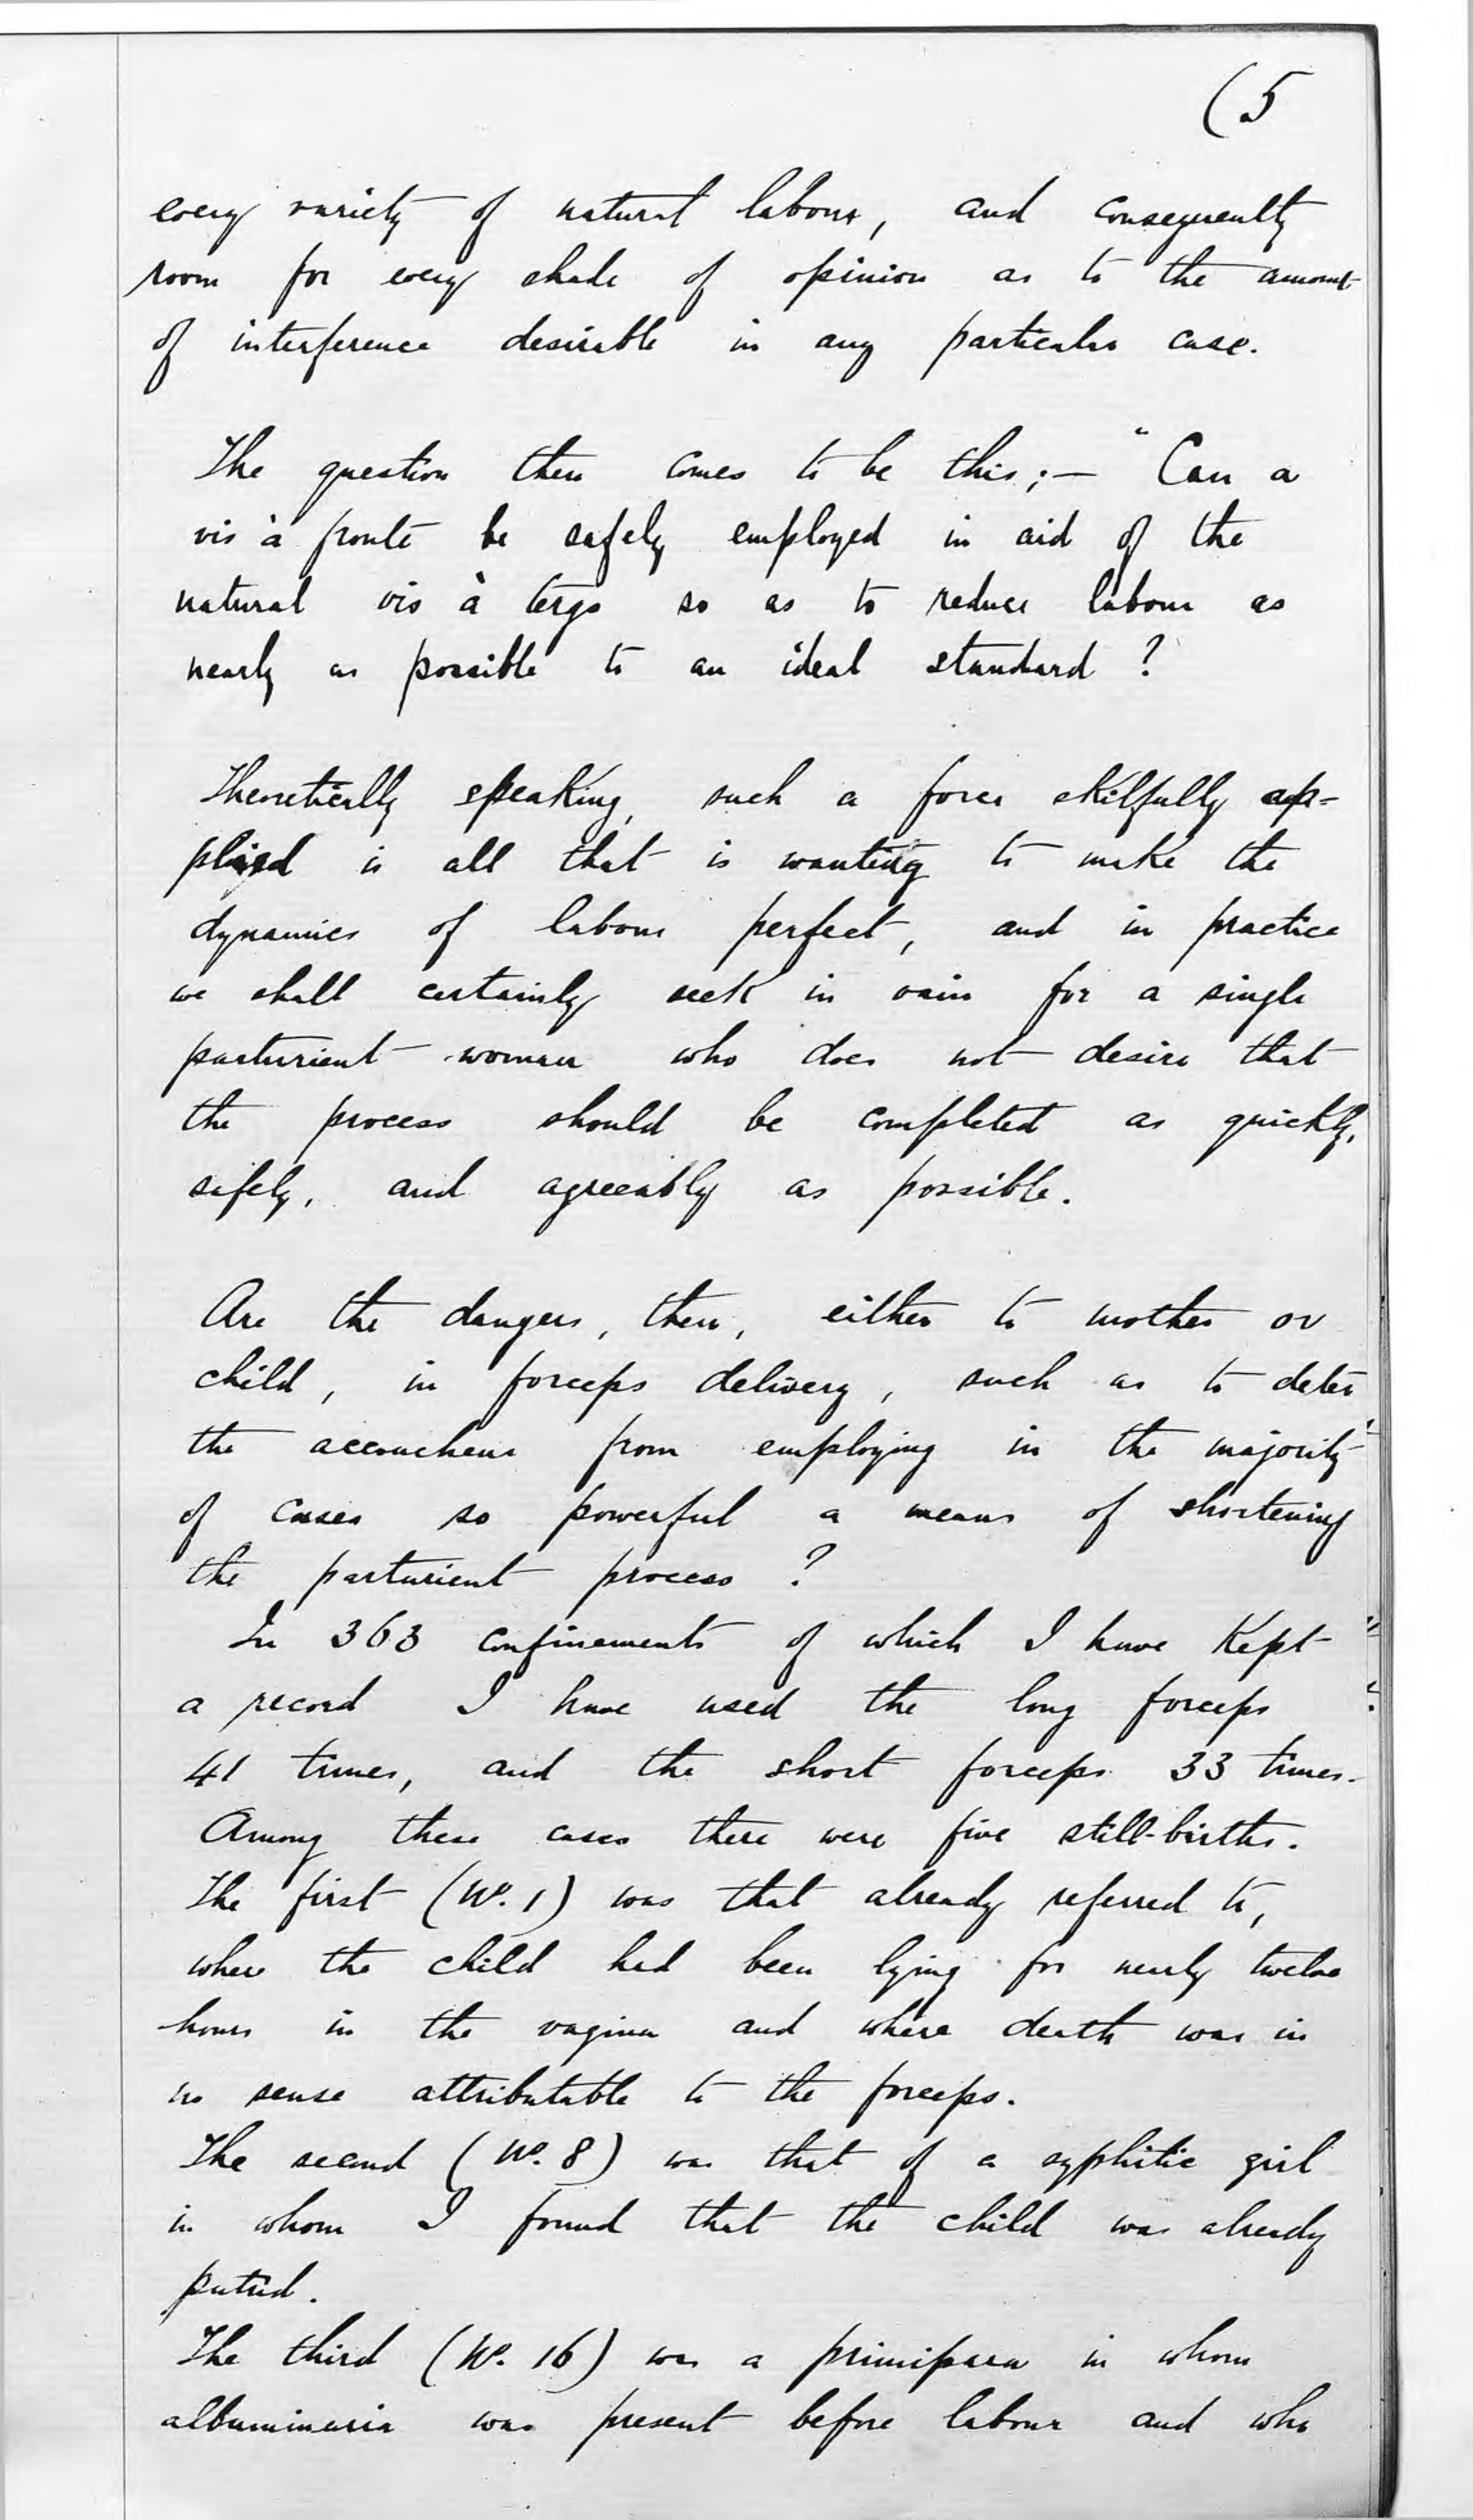 (5
every variety of natural labour, and consequently
room for every shade of opinion as to the amount
of interference desirable in any particular case.
The question then comes to be this;— "Can a
vis à fronte be safely employed in aid of the
natural vis à tergo so as to reduce labour as
nearly as possible to an ideal standard?
Theoretically speaking, such a force skilfully ap=
plied is all that is wanting to make the
dynamics of labour perfect, and in practice
we shall certainly seek in vain for a single
parturient woman who does not desire that
the process should be completed as quickly,
safely, and agreeably as possible.
Are the dangers, then, either to mother or
child, in forceps delivery, such as to deter
the accoucheur from employing in the majority
of cases so powerful a means of shortening
the parturient process?
In 363 confinements of which I have kept
a record I have used the long forceps
41 times, and the short forceps 33 times.
Among these cases there were five still-births.
The first (No. 1) was that already referred to,
where the child had been lying for nearly twelve
hours in the vagina and where death was in
no sense attributable to the forceps.
The second (No. 8) was that of a syphitic girl
in whom I found that the child was already
putrid.
The third (No. 16) was a primipara in whom
albuminuria was present before labour and who